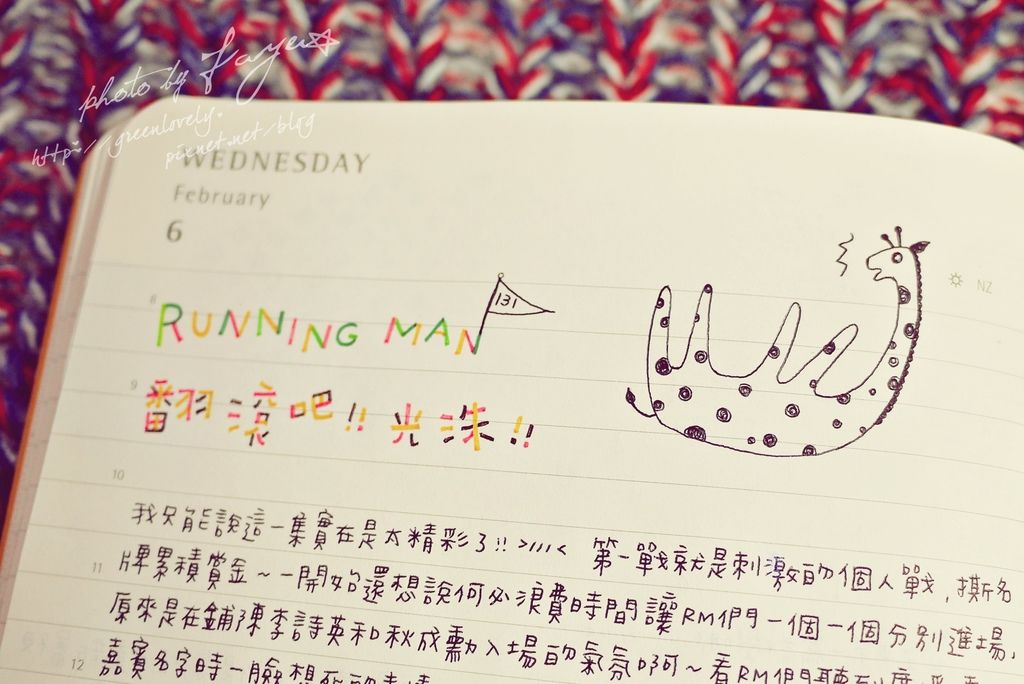 photo by Faye☆
http://greenlovely.
pixnet.net/blog
WEDNESDAY
February
6
NZ
8
131
RUNNING MAN
9
翻滾吧!! 光洙!!
10
我只能說這一集實在是太精彩了!! >////< 第一戰就是刺激的個人戰,撕名
11
牌累積賞金~一開始還想說何必浪費時間讓RM們一個一個分別進場,
原來是在鋪陳李詩英和秋成勳入場的氣氛啊~看RM們聽到
12
嘉賓名字時一臉想死的表情